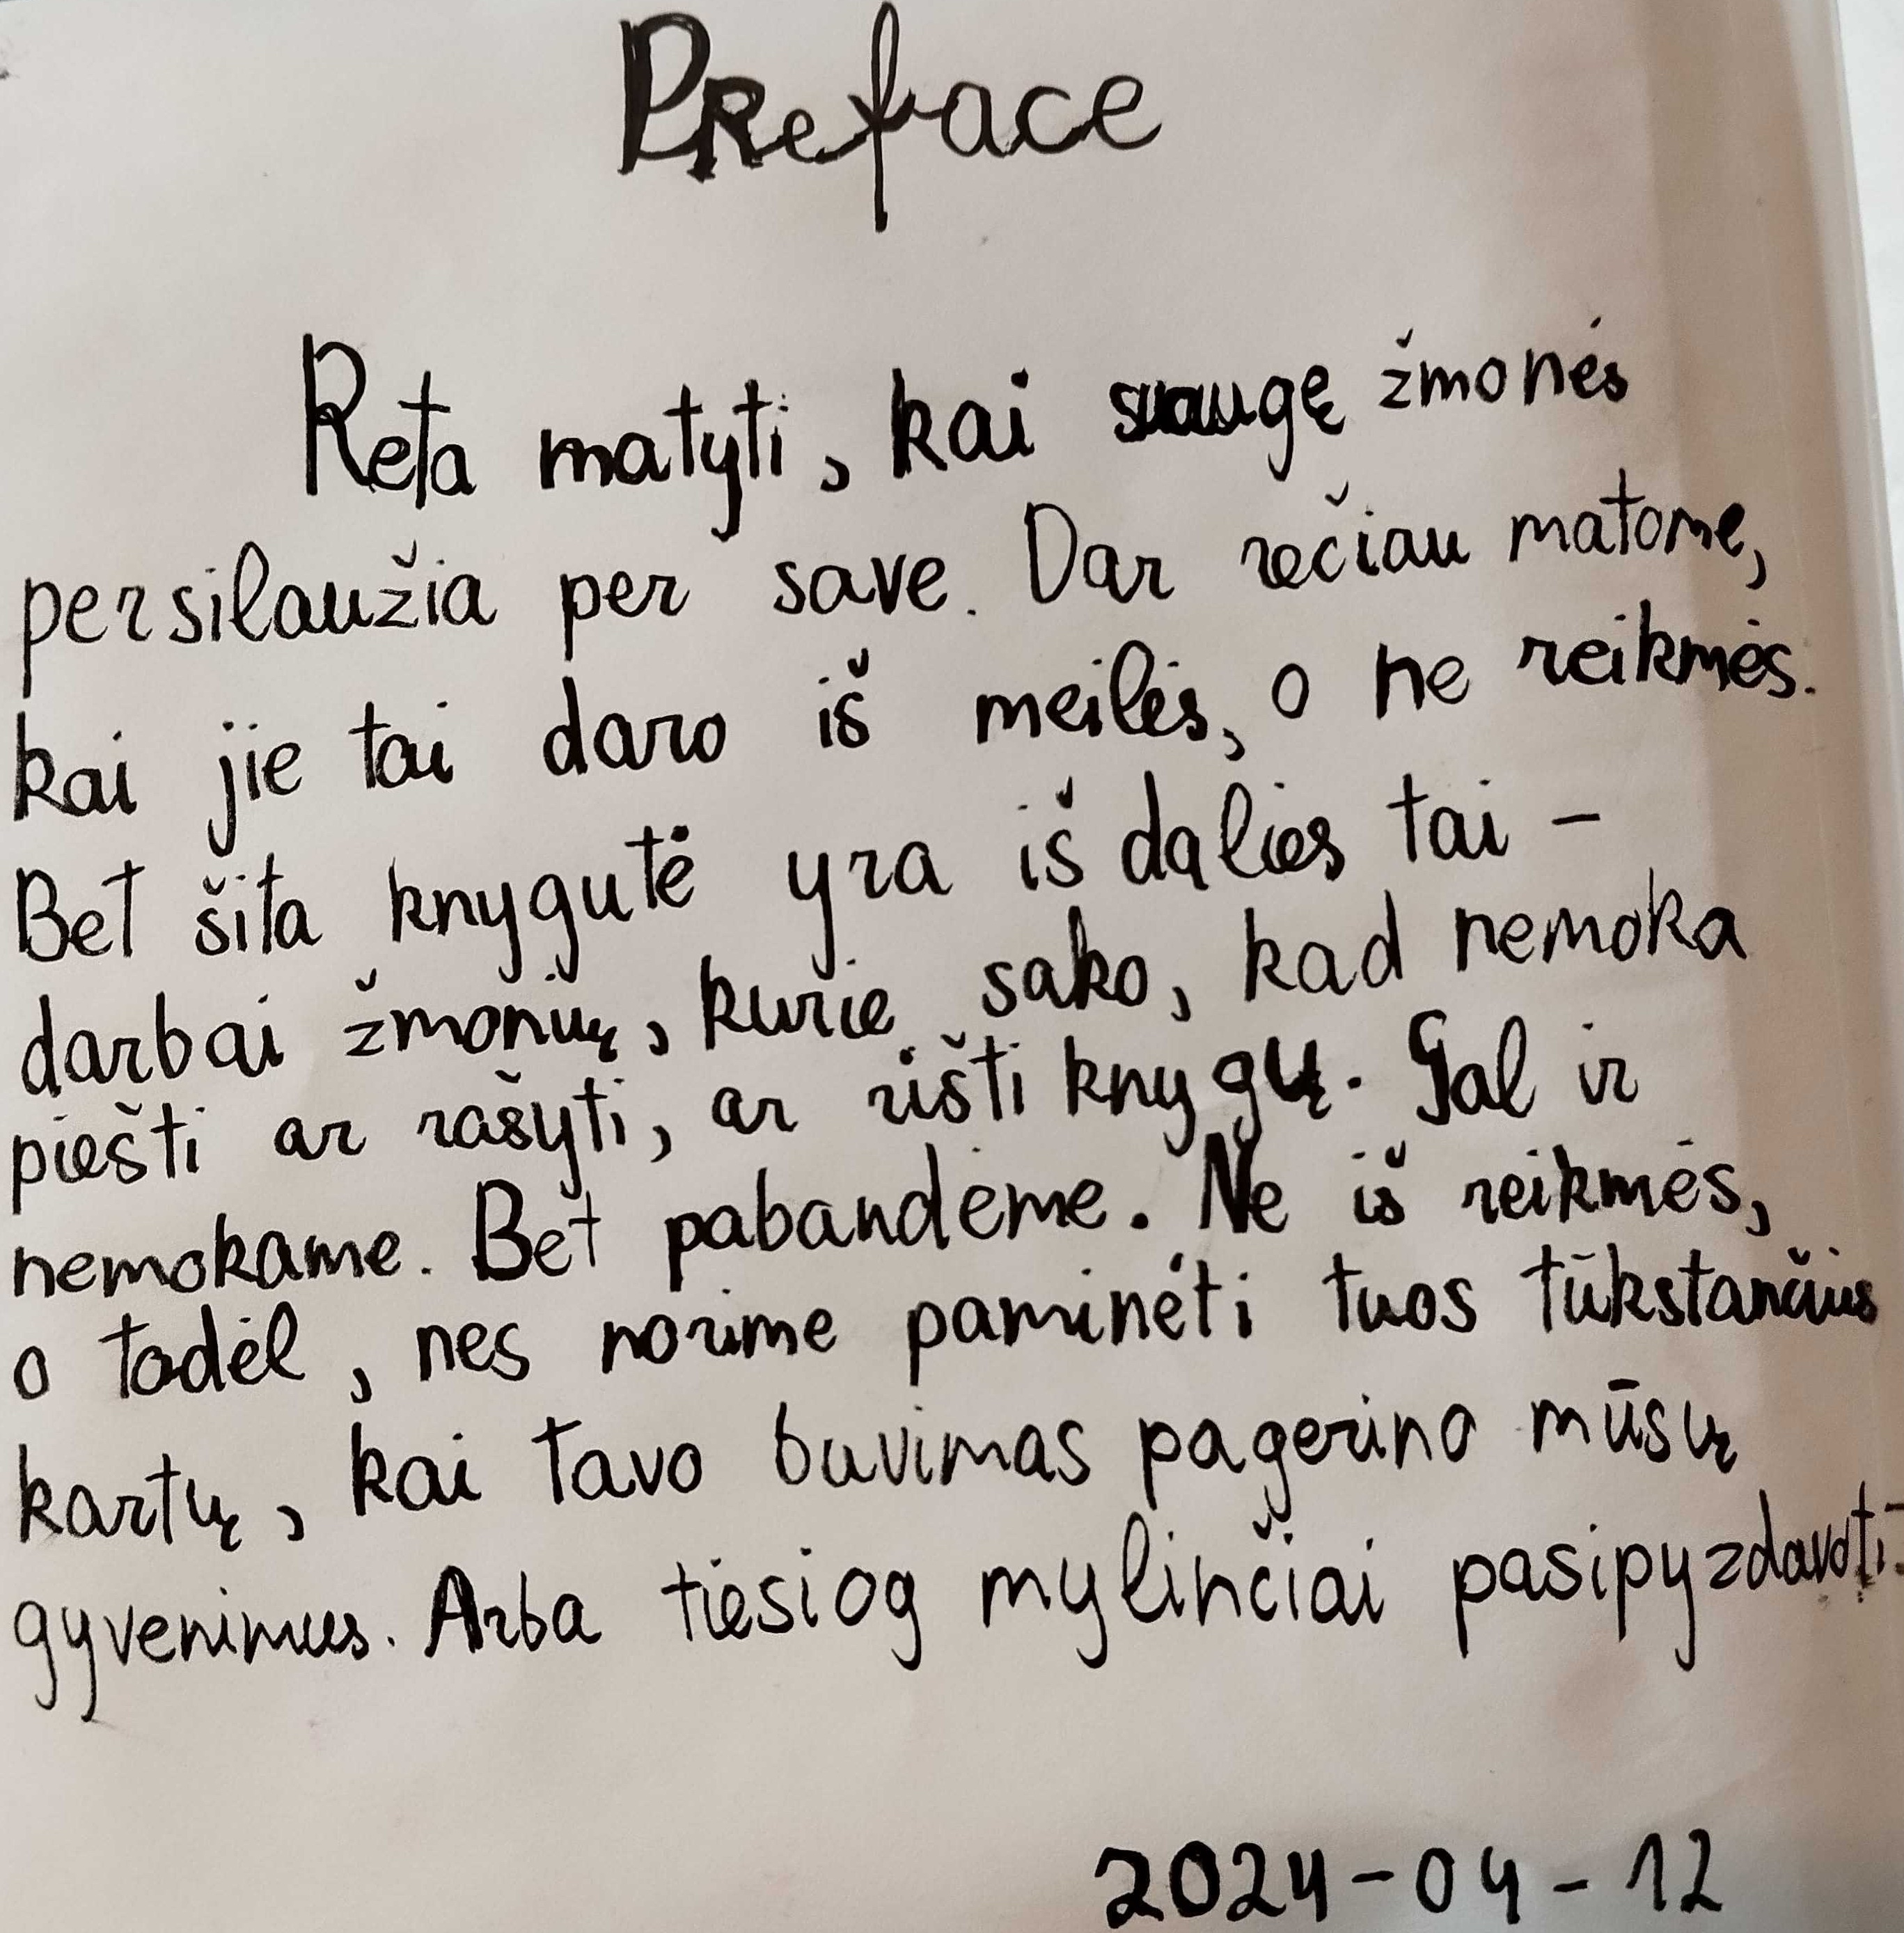 Preface
Reta matyti, kai suaugę žmonės
persilaužia per save. Dar rečiau matome,
kai jie tai daro iš meilės, o ne reikmės.
Bet šita knygutė yra iš dalies tai –
darbai žmonių, kurie sako, kad nemoka
piešti ar rašyti, ar rišti knygų. Gal ir
nemokame. Bet pabandėme. Ne iš reikmės,
o todėl, nes norime paminėti tuos tūkstančius
kartų, kai tavo buvimas pagerino mūsų
gyvenimus. Arba tiesiog mylinčiai pasipyzdavoti.
2024-04-12